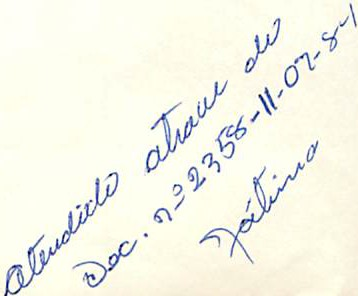 Atendido atraves do
Doc. nº 2358-11-07-84
Fátima